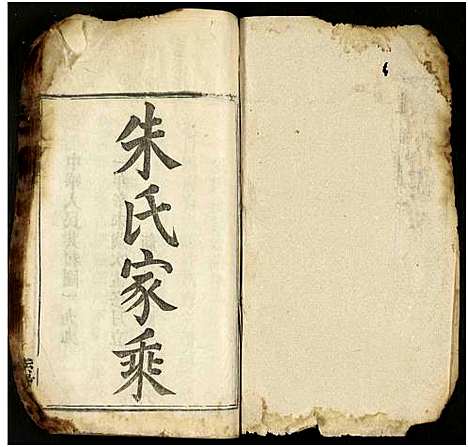 朱氏家乘